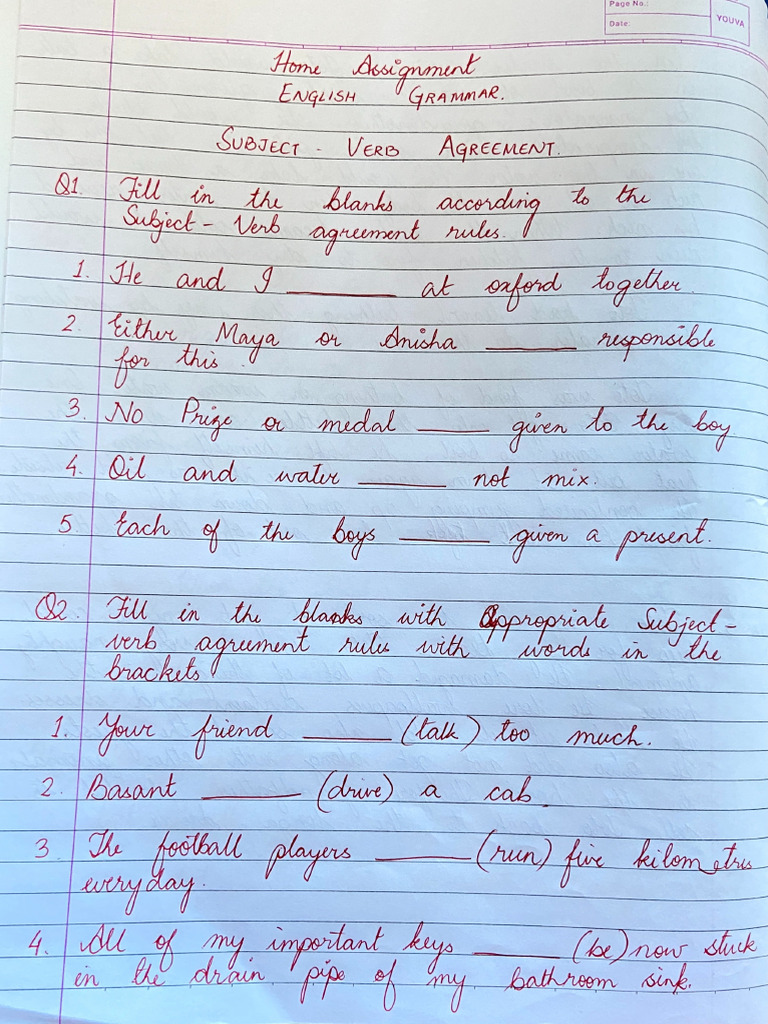 Page No.:
Date:
YOUVA
Home Assignment
ENGLISH GRAMMAR.
SUBJECT - VERB AGREEMENT.
Q1. Fill in the blanks according to the
Subject - Verb agreement rules.
1. He and I ________ at oxford together.
2. Either Maya or Anisha ________ responsible
for this.
3. No Prize or medal ________ given to the boy
4. Oil and water ________ not mix.
5. Each of the boys ________ given a present.
Q2. Fill in the blanks with Appropriate Subject -
verb agreement rules with words in the
brackets
1. Your friend ________ (talk) too much.
2. Basant ________ (drive) a cab.
3. The football players ________ (run) five kilometres
everyday.
4. All of my important keys ________ (be) now stuck
in the drain pipe of my bathroom sink.